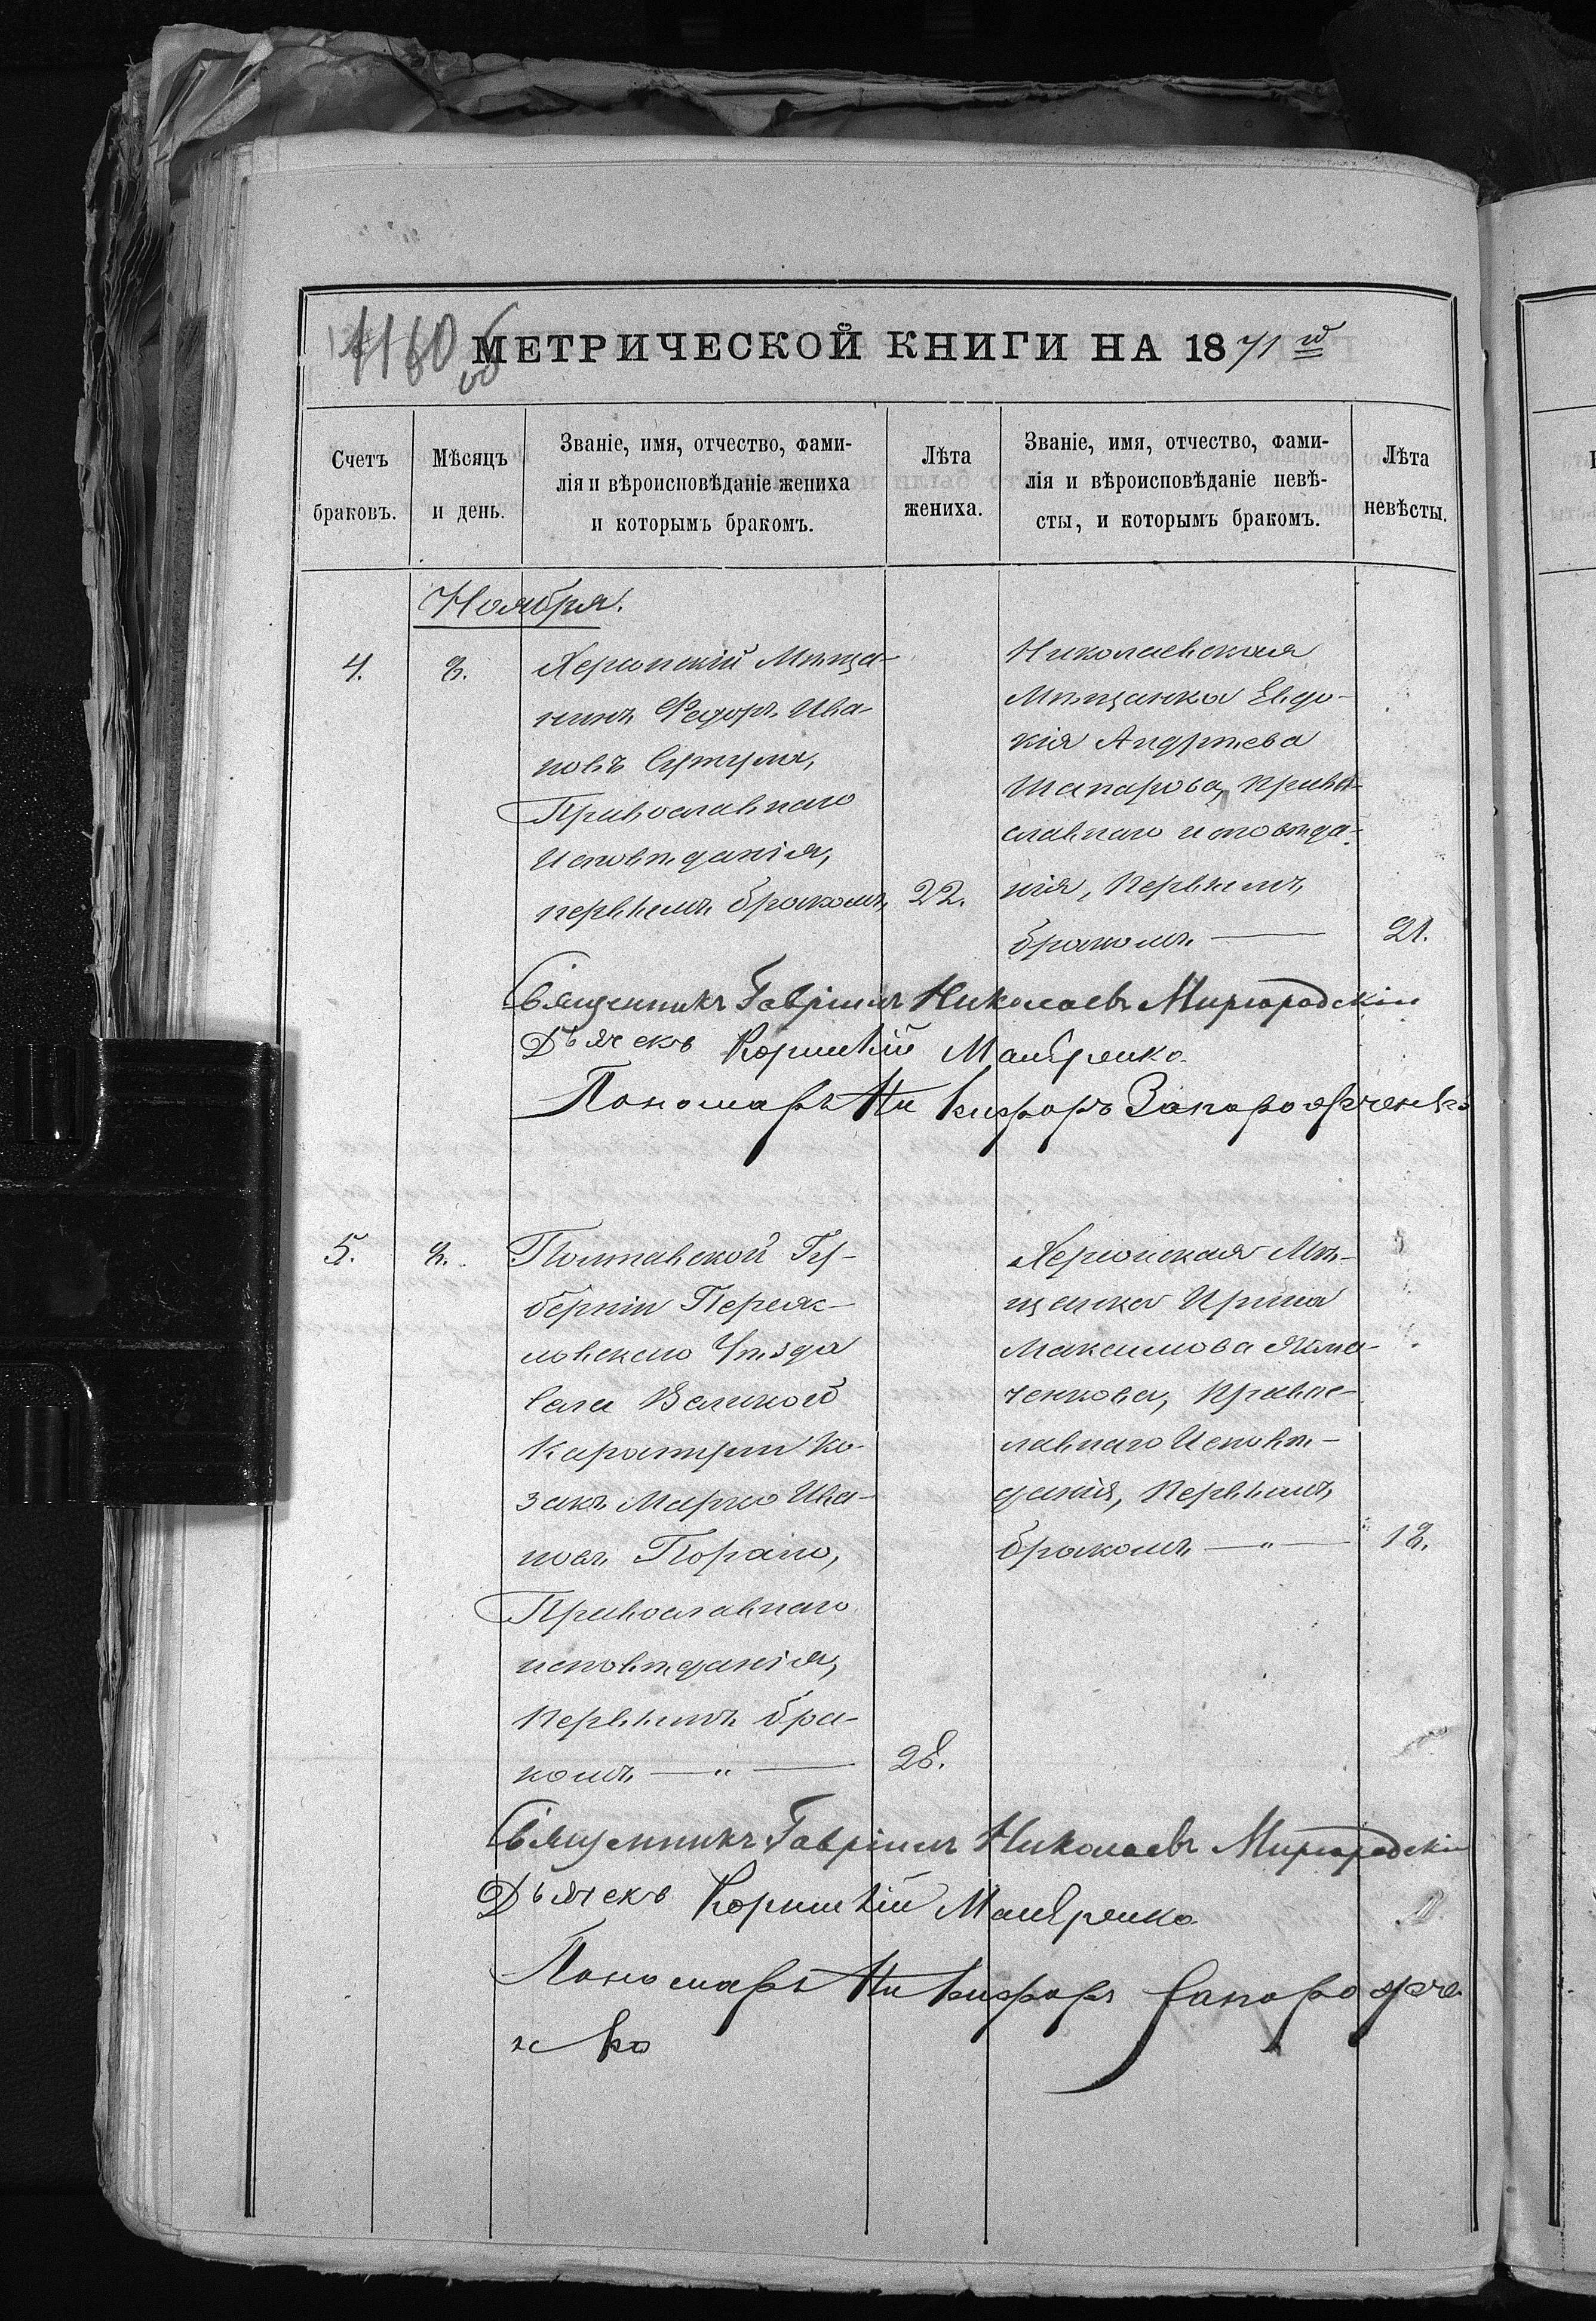 1160
об
МЕТРИЧЕСКОЙ КНИГИ НА 1871й
Счетъ
браковъ.
Мѣсяцъ
и день.
Званіе, имя, отчество, фами-
лія и вѣроисповѣданіе жениха
и которымъ бракомъ.
Лѣта
жениха.
Званіе, имя, отчество, фами-
лія и вѣроисповѣданіе невѣ-
сты, и которымъ бракомъ.
Лѣта
невѣсты.
Ноября.
4.
8.
Херсонскій Мѣща-
нинъ Федоръ Ива-
новъ Сутула,
Православнаго
Исповѣданія,
первымъ бракомъ,
22.
Николаевская
Мѣщанка Евдо-
кія Андреева
Шапарова, Право-
славнаго исповѣда-
нія, Первымъ
бракомъ
21.
Священникъ Гавріилъ Николаевъ Миргородскій
Дьячекъ
Пономарь Никифоръ Запорожченко
5.
8.
Полтавской Гу-
берніи Переяс-
ловскаго Уѣзда
Села Великой
Каратули Ко-
закъ Марко Ива-
новъ
Православнаго
исповѣданія,
Первымъ бра-
комъ — " —
28.
Херсонская Мѣ-
щанка Ирина
Максимова
ченкова, Правос-
лавнаго Исповѣ-
данія, Первымъ
бракомъ — " —
18.
Священникъ Гавріилъ Николаевъ Миргородскій
Дьячекъ
Пономарь Никифоръ Запорожче
нко